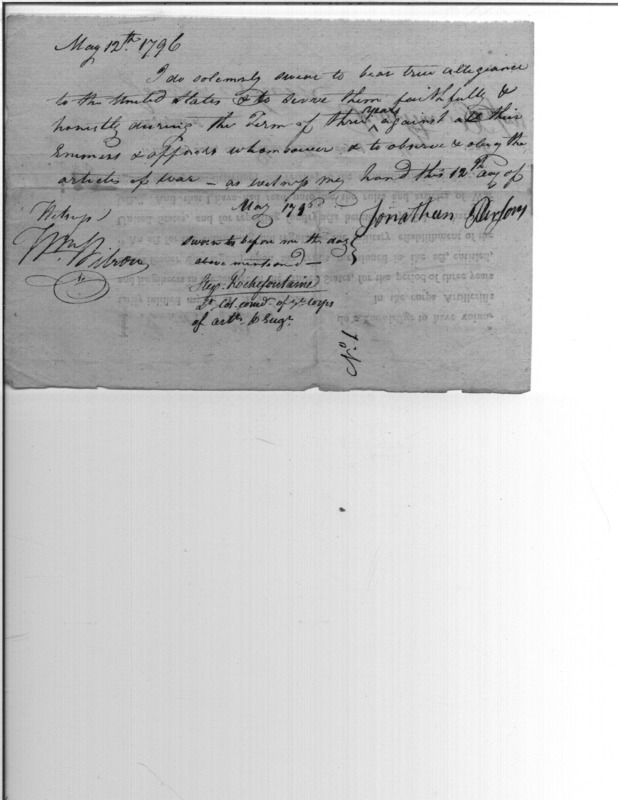 May 12th 1796
I do solemnly swear to bear true allegiance
to the United States & to serve them faithfully &
honestly during the Term of three years against all their
Enemies & oppposers whomsoever & to observe & obey the
articles of war – as witness my hand this 12th day of
May 179
Jonathan
Witness
Wm Wilson
sworn to before me the day
above mentioned –
Step. Rochefontaine
Lt Col. comdt of ye corps
of artts & Engr
No. 1